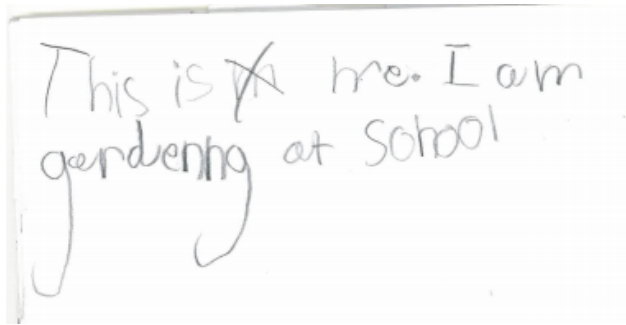 This is me. I am
gardenng at school